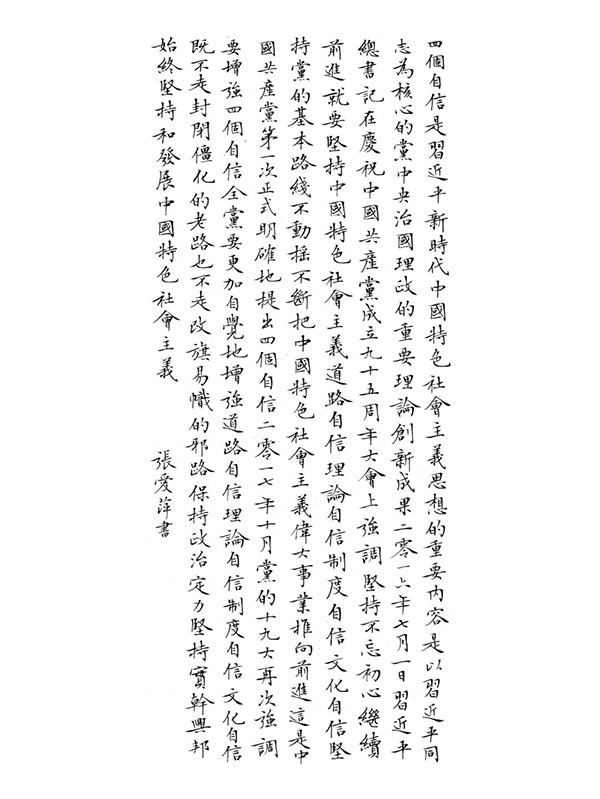 四個自信是習近平新時代中國特色社會主義思想的重要内容是以習近平同
志為核心的黨中央治國理政的重要理論創新成果二零一六年七月一日習近平
總書記在慶祝中國共產黨成立九十五周年大會上強調堅持不忘初心繼續
前進就要堅持中國特色社會主義道路自信理論自信制度自信文化自信堅
持黨的基本路綫不動摇不斷把中國特色社會主義偉大事業推向前進這是中
國共產黨第一次正式明確地提出四個自信二零一七年十月黨的十九大再次強調
要增強四個自信全黨要更加自覺地增強道路自信理論自信制度自信文化自信
既不走封閉僵化的老路也不走改旗易幟的邪路保持政治定力堅持實幹興邦
始終堅持和發展中國特色社會主義
張愛萍書